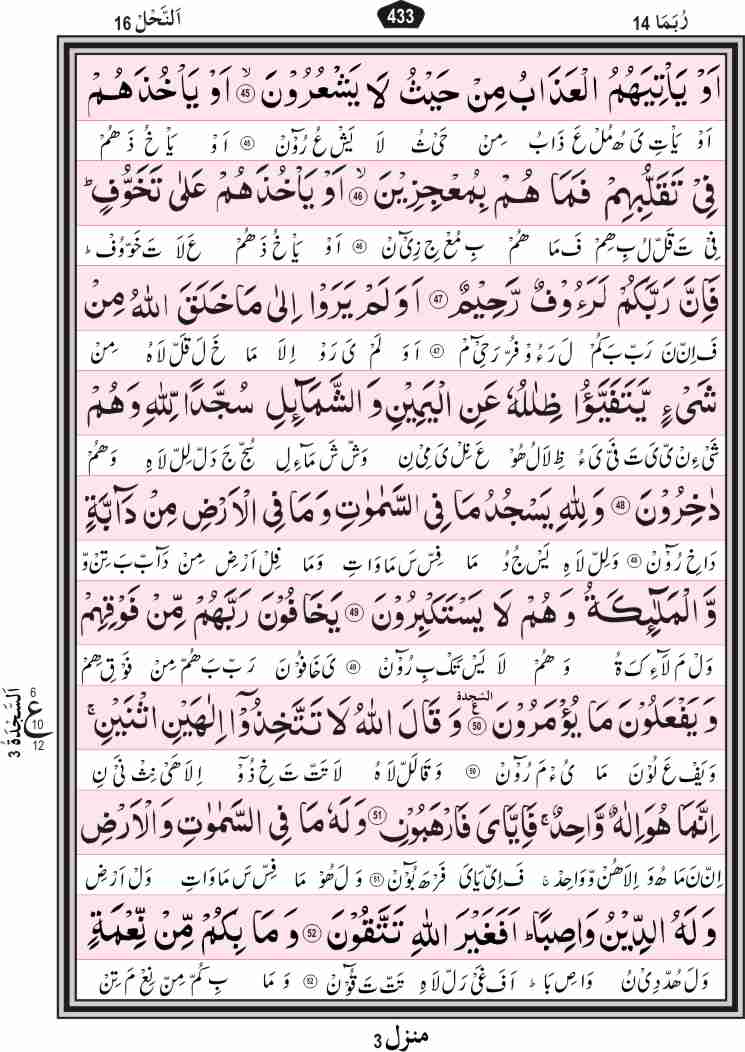 رُبَمَا 14
433
اَلنَّحْل 16
اَوْ يَاْتِيَهُمُ الْعَذَابُ مِنْ حَيْثُ لَا يَشْعُرُوْنَ ۙ 45 اَوْ يَاْخُذَهُمْ
اَوْ يَاْتِ يَ هُمُلْ عَ ذَابُ مِنْ حَيْ ثُ لَا يَشْ عُ رُوْٓنْ 45 اَوْ يَاْ خُ ذَ هُمْ
فِيْ تَقَلُّبِهِمْ فَمَا هُمْ بِمُعْجِزِيْنَ ۙ 46 اَوْ يَاْخُذَهُمْ عَلٰى تَخَوُّفٍ ؕ
فِيْ تَ قَلْ لُ بِ هِمْ فَ مَا هُمْ بِ مُعْ جِ زِيْٓنْ 46 اَوْ يَاْ خُ ذَ هُمْ عَ لَا تَ خَوْ وُفْ ؕ
فَاِنَّ رَبَّكُمْ لَرَءُوْفٌ رَّحِيْمٌ 47 اَوَلَمْ يَرَوْا اِلٰى مَا خَلَقَ اللّٰهُ مِنْ
فَ اِنْ نَ رَبْ بَ كُمْ لَ رَ ءُوْ فُرْ رَ حِيْٓ مْ 47 اَ وَ لَمْ يَ رَوْ اِلَا مَا خَ لَ قَلْ لَا هُ مِنْ
شَيْءٍ يَّتَفَيَّؤُا ظِلٰلُهٗ عَنِ الْيَمِيْنِ وَ الشَّمَآئِلِ سُجَّدًا لِّلّٰهِ وَ هُمْ
شَيْ ءِنْ يْ يَ تَ فَيْ يَ ءُ ظِ لَا لُ هُوْ عَ نِلْ يَ مِيْ نِ وَشْ شَ مَآءِ لِ سُجْ جَ دَلْ لِلْ لَا هِ وَ هُمْ
دٰخِرُوْنَ 48 وَ لِلّٰهِ يَسْجُدُ مَا فِي السَّمٰوٰتِ وَ مَا فِي الْاَرْضِ مِنْ دَآبَّةٍ
دَا خِ رُوْٓنْ 48 وَ لِلْ لَا هِ يَسْ جُ دُ مَا فِسْ سَ مَا وَا تِ وَمَا فِلْ اَرْ ضِ مِنْ دَآبْ بَ تِنْ وْ
وَّ الْمَلٰٓئِكَةُ وَ هُمْ لَا يَسْتَكْبِرُوْنَ 49 يَخَافُوْنَ رَبَّهُمْ مِّنْ فَوْقِهِمْ
وَلْ مَ لَآءِ كَ ةُ وَ هُمْ لَا يَسْ تَكْ بِ رُوْٓنْ 49 يَ خَا فُوْنَ رَبْ بَ هُمْ مِنْ فَوْ قِ هِمْ
وَ يَفْعَلُوْنَ مَا يُؤْمَرُوْنَ ۩ 50 اَلسَّجْدَة وَ قَالَ اللّٰهُ لَا تَتَّخِذُوْٓا اِلٰهَيْنِ اثْنَيْنِ ۚ
اَلسَّجْدَةُ 3
6
ع
10
12
وَ يَفْ عَ لُوْنَ مَا يُءْ مَ رُوْٓنْ 50 وَ قَا لَلْ لَا هُ لَا تَتْ تَ خِ ذُوْٓ اِلَا هَيْ نِثْ نَيْ نِ
اِنَّمَا هُوَ اِلٰهٌ وَّاحِدٌ ۚ فَاِيَّايَ فَارْهَبُوْنِ 51 وَ لَهٗ مَا فِي السَّمٰوٰتِ وَ الْاَرْضِ
اِنْ نَ مَا هُوَ اِلَا هُنْ وْ وَاحِدْ ۚ فَ اِيْ يَا يَ فَرْ هَ بُوْٓنْ 51 وَ لَ هُوْ مَا فِسْ سَ مَا وَا تِ وَلْ اَرْ ضِ
وَ لَهُ الدِّيْنُ وَاصِبًا ؕ اَفَغَيْرَ اللّٰهِ تَتَّقُوْنَ 52 وَ مَا بِكُمْ مِّنْ نِّعْمَةٍ
وَ لَ هُدْ دِيْ نُ وَا صِ بَا ؕ اَ فَ غَيْ رَلْ لَا هِ تَتْ تَ قُوْٓنْ 52 وَ مَا بِ كُمْ مِنْ نِعْ مَ تِنْ
منزل 3